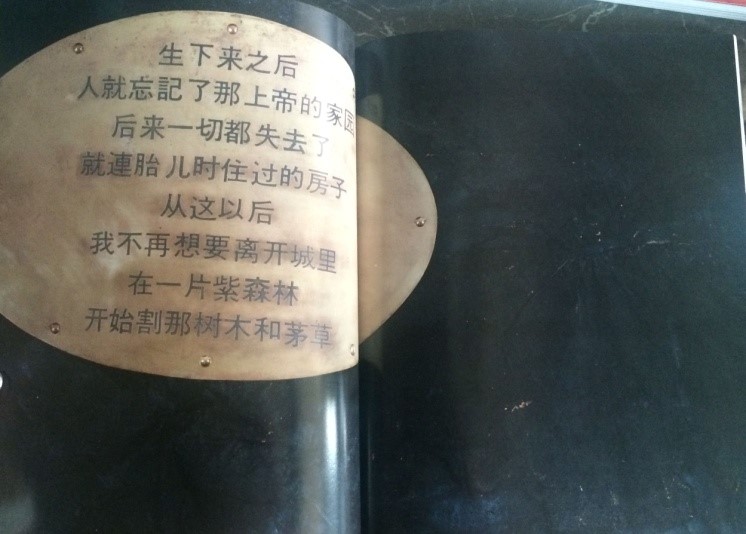 生下来之后
人就忘記了那上帝的家园
后来一切都失去了
就連胎儿时住过的房子
从这以后
我不再想要离开城里
在一片紫森林
开始割那树木和茅草